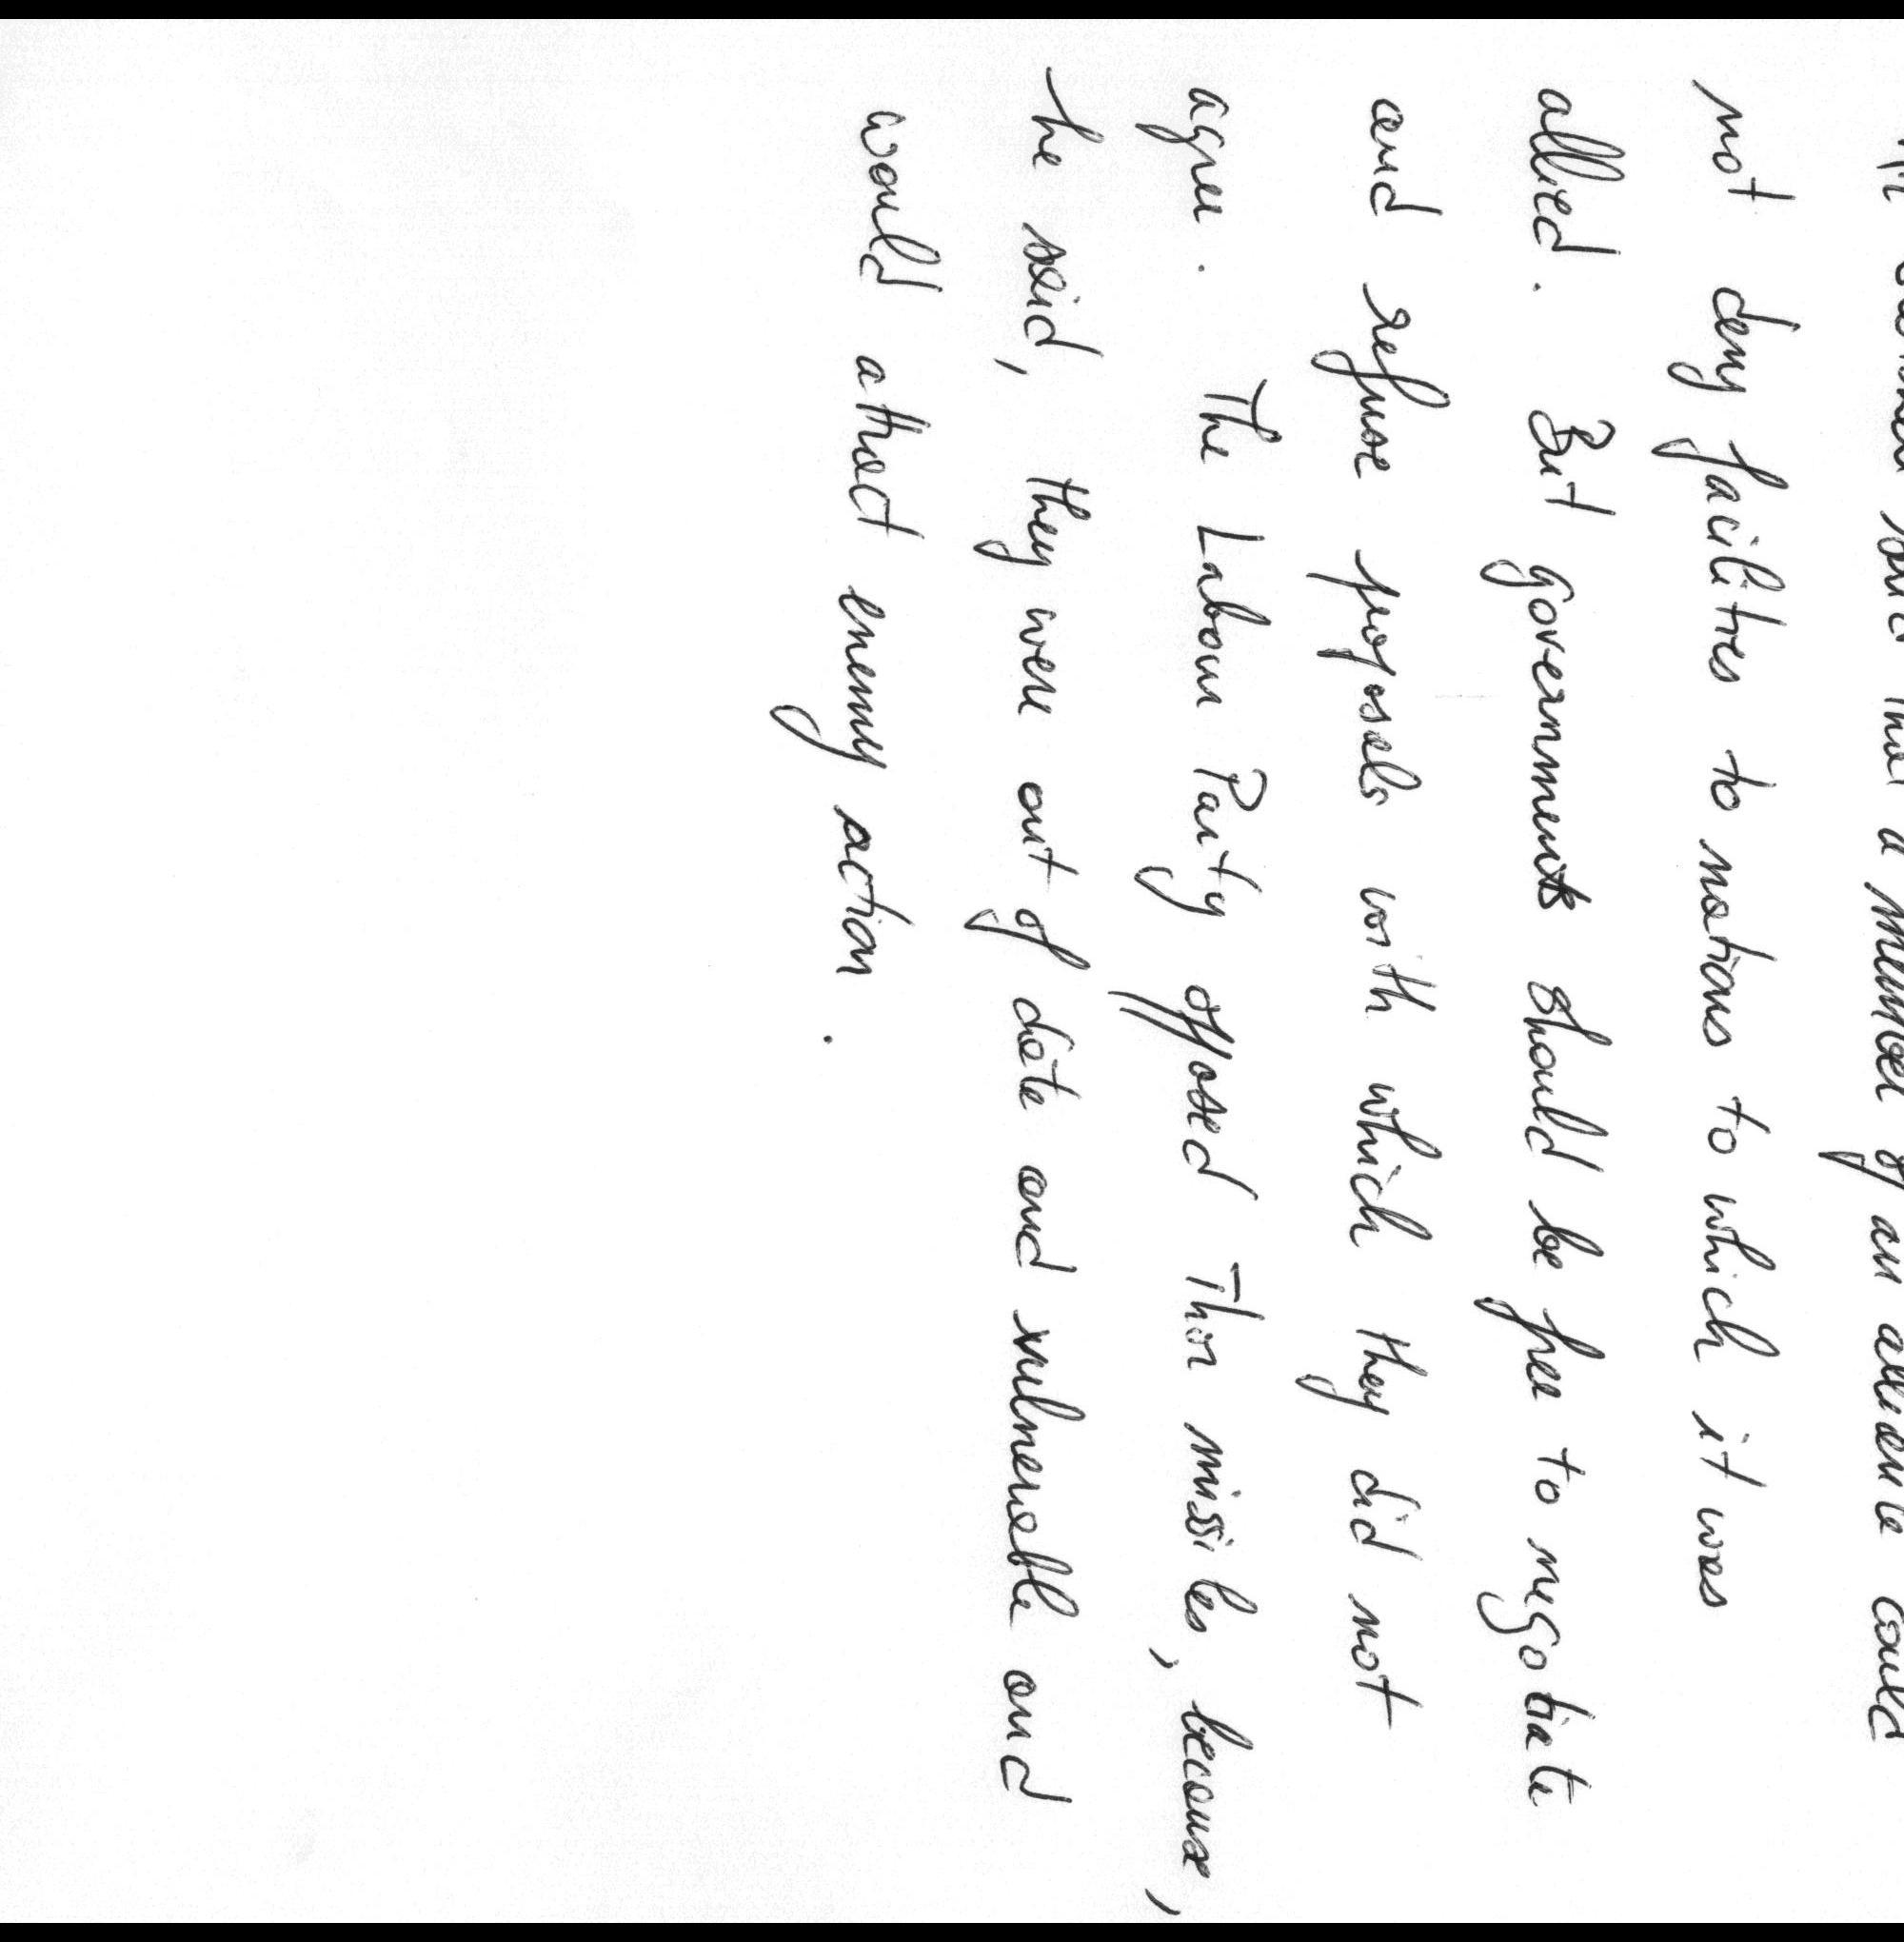 said that a member of an alliance could
not deny facilities to nations to which it was
allied. But governments should be free to negotiate
and refuse proposals with which they did not
agree. The Labour Party opposed Thor missiles, because,
he said, they were out of date and vulnerable and
would attract enemy action.